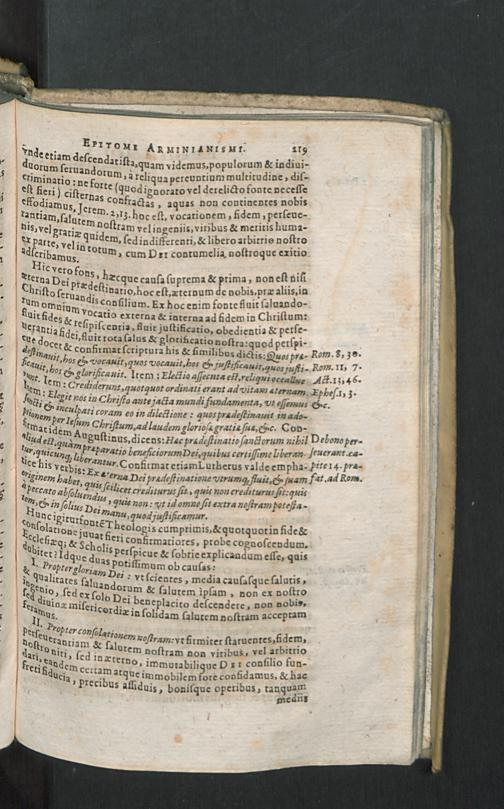 EPITOME ARMINIANISMI. 219
vnde etiam descendat ista, quam videmus, populorum & indiui-
duorum seruandorum, à reliqua pereuntium multitudine, dis-
criminatio: ne forte (quod ignorato vel derelicto fonte necesse
est fieri) cisternas confractas, aquas non continentes nobis
effodiamus, Jerem. 2, 13. hoc est, vocationem, fidem, perseue-
rantiam, salutem nostram vel ingeniis, viribus & meritis huma-
nis, vel gratiæ quidem, sed indifferenti, & libero arbitrio nostro
ex parte, vel in totum, cum DEI contumelia, nostroque exitio
adscribamus.
Hic vero fons, hæcque causa suprema & prima, non est nisi
æterna Dei prædestinatio, hoc est, æternum de nobis, præ aliis, in
Christo seruandis consilium. Ex hoc enim fonte fluit saluando-
rum omnium vocatio externa & interna ad fidem in Christum:
fluit fides & resipiscentia, fluit justificatio, obedientia & perse-
uerantia fidei, fluit tota salus & glorificatio nostra: quod perspi-
cue docet & confirmat scriptura his & similibus dictis: Quos præ-
destinauit, hos & vocauit, quos vocauit, hos & justificauit, quos justi-
ficauit, hos & glorificauit. Item: Electio assecuta est, reliqui occallue-
runt. Item: Crediderunt, quotquot ordinati erant ad vitam æternam.
Item: Elegit nos in Christo ante jacta mundi fundamenta, vt essemus
sancti & inculpati coram eo in dilectione: quos prædestinauit in ado-
ptionem per Iesum Christum, ad laudem gloriosæ gratiæ suæ, &c. Con-
firmat idem Augustinus, dicens: Hæc prædestinatio sanctorum nihil
aliud est, quam præparatio beneficiorum Dei, quibus certissime liberan-
tur, quicunq; liberantur. Confirmat etiam Lutherus valde empha-
tice his verbis: Ex æterna Dei prædestinatione vtrumq; fluit, & suam
originem habet, quis scilicet crediturus sit, quis non crediturus sit: quis
à peccato absoluendus, quis non: vt id omne sit extra nostram potesta-
tem, & in solius Dei manu, quod justificamur.
Hunc igitur fontē Theologis cumprimis, & quotquot in fide &
consolatione juvat fieri confirmatiores, probe cognoscendum,
Ecclesiæq; & Scholis perspicue & sobrie explicandum esse, quis
dubitet? Idque duas potissimum ob causas:
I. Propter gloriam Dei: vt scientes, media causasque salutis,
& qualitates saluandorum & salutem ipsam, non ex nostro
ingenio, sed ex solo Dei beneplacito descendere, non nobis,
sed diuinæ misericordiæ in solidam salutem nostram acceptam
feramus.
II. Propter consolationem nostram: vt firmiter statuentes, fidem,
perseuerantiam & salutem nostram non viribus, vel arbitrio
nostro niti, sed in æterno, immutabilique DEI consilio fun-
dari, eandem certam atque immobilem fore confidamus, & hac
freti fiducia, precibus assiduis, bonisque operibus, tanquam
mediis
Rom. 8, 30.
Rom. 11, 7.
Act. 13, 46.
Ephes. 1, 3.
&c.
De bono per-
seuerant. ca-
pite 14. præ-
fat. ad Rom.